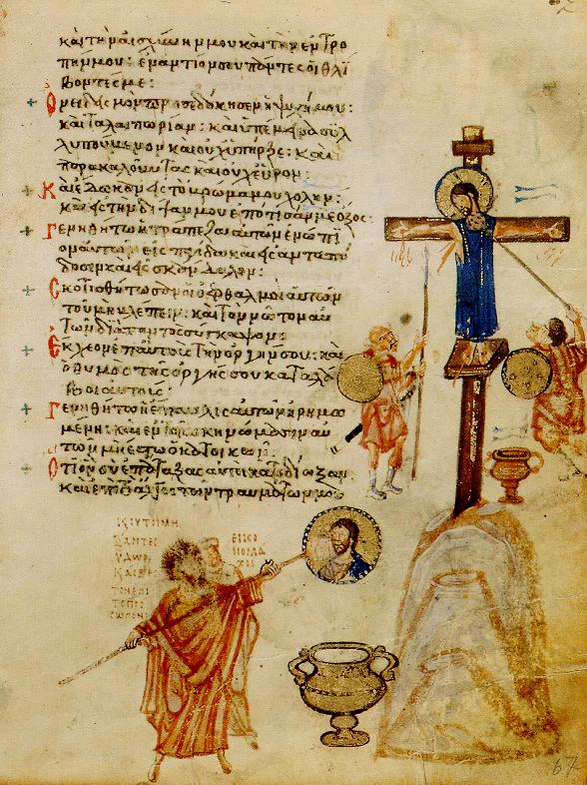 καὶ τὴν αἰσχύνην μου καὶ τὴν ἐντρο
πήν μου: ἐναντίον σου πάντες οἱ θλί
βοντές με:
Ὀνειδισμὸν προσεδόκησεν ἡ ψυχή μου:
καὶ ταλαιπωρίαν: καὶ ὑπέμεινα συλ
λυπούμενον καὶ οὐχ ὑπῆρξε: καὶ
παρακαλοῦντας καὶ οὐχ εὗρον:
Καὶ ἔδωκαν εἰς τὸ βρῶμα μου χολὴν:
καὶ εἰς τὴν δίψαν μου ἐπότισάν με ὄξος:
Γενηθήτω ἡ τράπεζα αὐτῶν ἐνώπι
ον αὐτῶν εἰς παγίδα καὶ εἰς ἀνταπό
δοσιν καὶ εἰς σκάνδαλον:
Σκοτισθήτωσαν οἱ ὀφθαλμοὶ αὐτῶν
τοῦ μὴ βλέπειν: καὶ τὸν νῶτον αὐ
τῶν διὰ παντὸς σύγκαμψον:
Ἔκχεον ἐπ' αὐτοὺς τὴν ὀργήν σου: καὶ
ὁ θυμὸς τῆς ὀργῆς σου καταλά
βοι αὐτούς:
Γενηθήτω ἡ ἔπαυλις αὐτῶν ἠρημω
μένη: καὶ ἐν τοῖς σκηνώμασιν αὐ
τῶν μὴ ἔστω ὁ κατοικῶν:
Ὅτι ὃν σὺ ἐπάταξας αὐτοὶ κατεδίωξαν:
καὶ ἐπὶ τὸ ἄλγος τῶν τραυμάτων μου
67